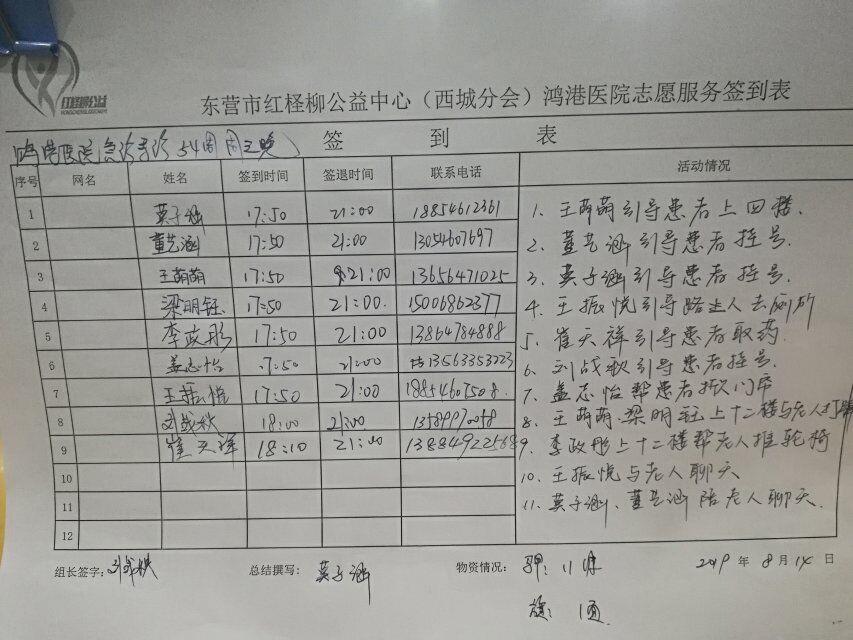 红柽柳公益
东营市红柽柳公益中心（西城分会）鸿港医院志愿服务签到表
签 到 表
鸿港医院急诊导诊54周周三晚
序号 网名 姓名 签到时间 签退时间 联系电话 活动情况
1 莫子涵 17:50 21:00 18854612361
2 董艺涵 17:50 21:00 13054607697
3 王萌萌 17:50 21:00 13656471025
4 梁明钰 17:50 21:00 15006862377
5 李政彤 17:50 21:00 13864784888
6 孟志怡 17:50 21:00 13563353223
7 王振悦 17:50 21:00 18854607508
8 刘战秋 18:00 21:00
9 崔天祥 18:10 21:00 13884922568
10
11
12
1. 王萌萌引导患者上四楼.
2. 董艺涵引导患者挂号.
3. 莫子涵引导患者挂号.
4. 王振悦引导路上人去厕所
5. 崔天祥引导患者取药.
6. 刘战秋引导患者挂号.
7. 孟志怡帮患者
8. 王萌萌.梁明钰上十二楼与老人打
9. 李政彤上十二楼帮老人推轮椅
10. 王振悦与老人聊天
11. 莫子涵、董艺涵陪老人聊天.
组长签字: 刘战秋 总结撰写: 莫子涵 物资情况: 11件 2019 年 8 月 14 日
旗: 1面